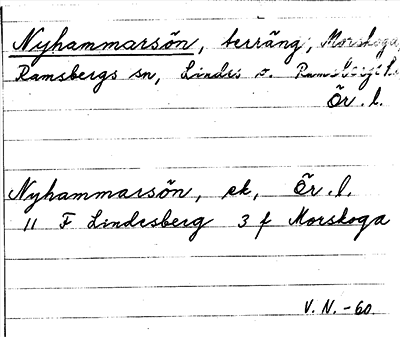 Nyhammarsön, terräng, Morskoga,
Ramsbergs sn, Lindes o. Ramsbergs
Ör. l.
Nyhammarsön, ek, Ör. l.
11 F Lindesberg 3 f Morskoga
V. N. -60.